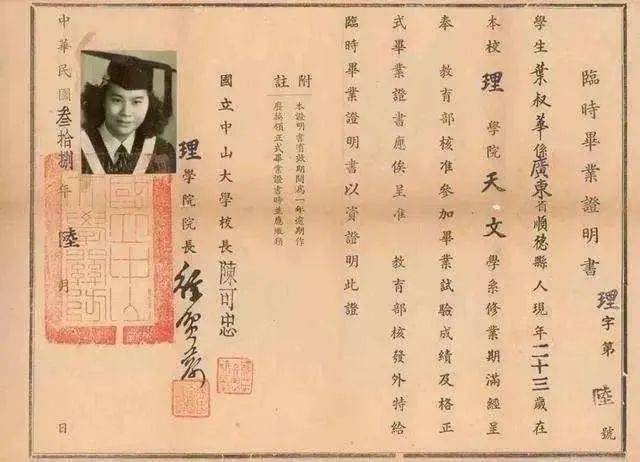 臨時畢業證明書
理字第陸號
學生葉叔華係廣東省順德縣人現年二十三歲在
本校理學院天文學系修業期滿經呈
奉 教育部核准參加畢業試驗成績及格正
式畢業證書應俟呈准 教育部核發外特給
臨時畢業證明書以資證明此證
附註
本證明書有效期間為一年逾期作
廢換領正式畢業證書時並應繳
國立中山大學校長陳可忠
理學院院長
國立中山大學關防
中華民國叁拾捌年陸月 日